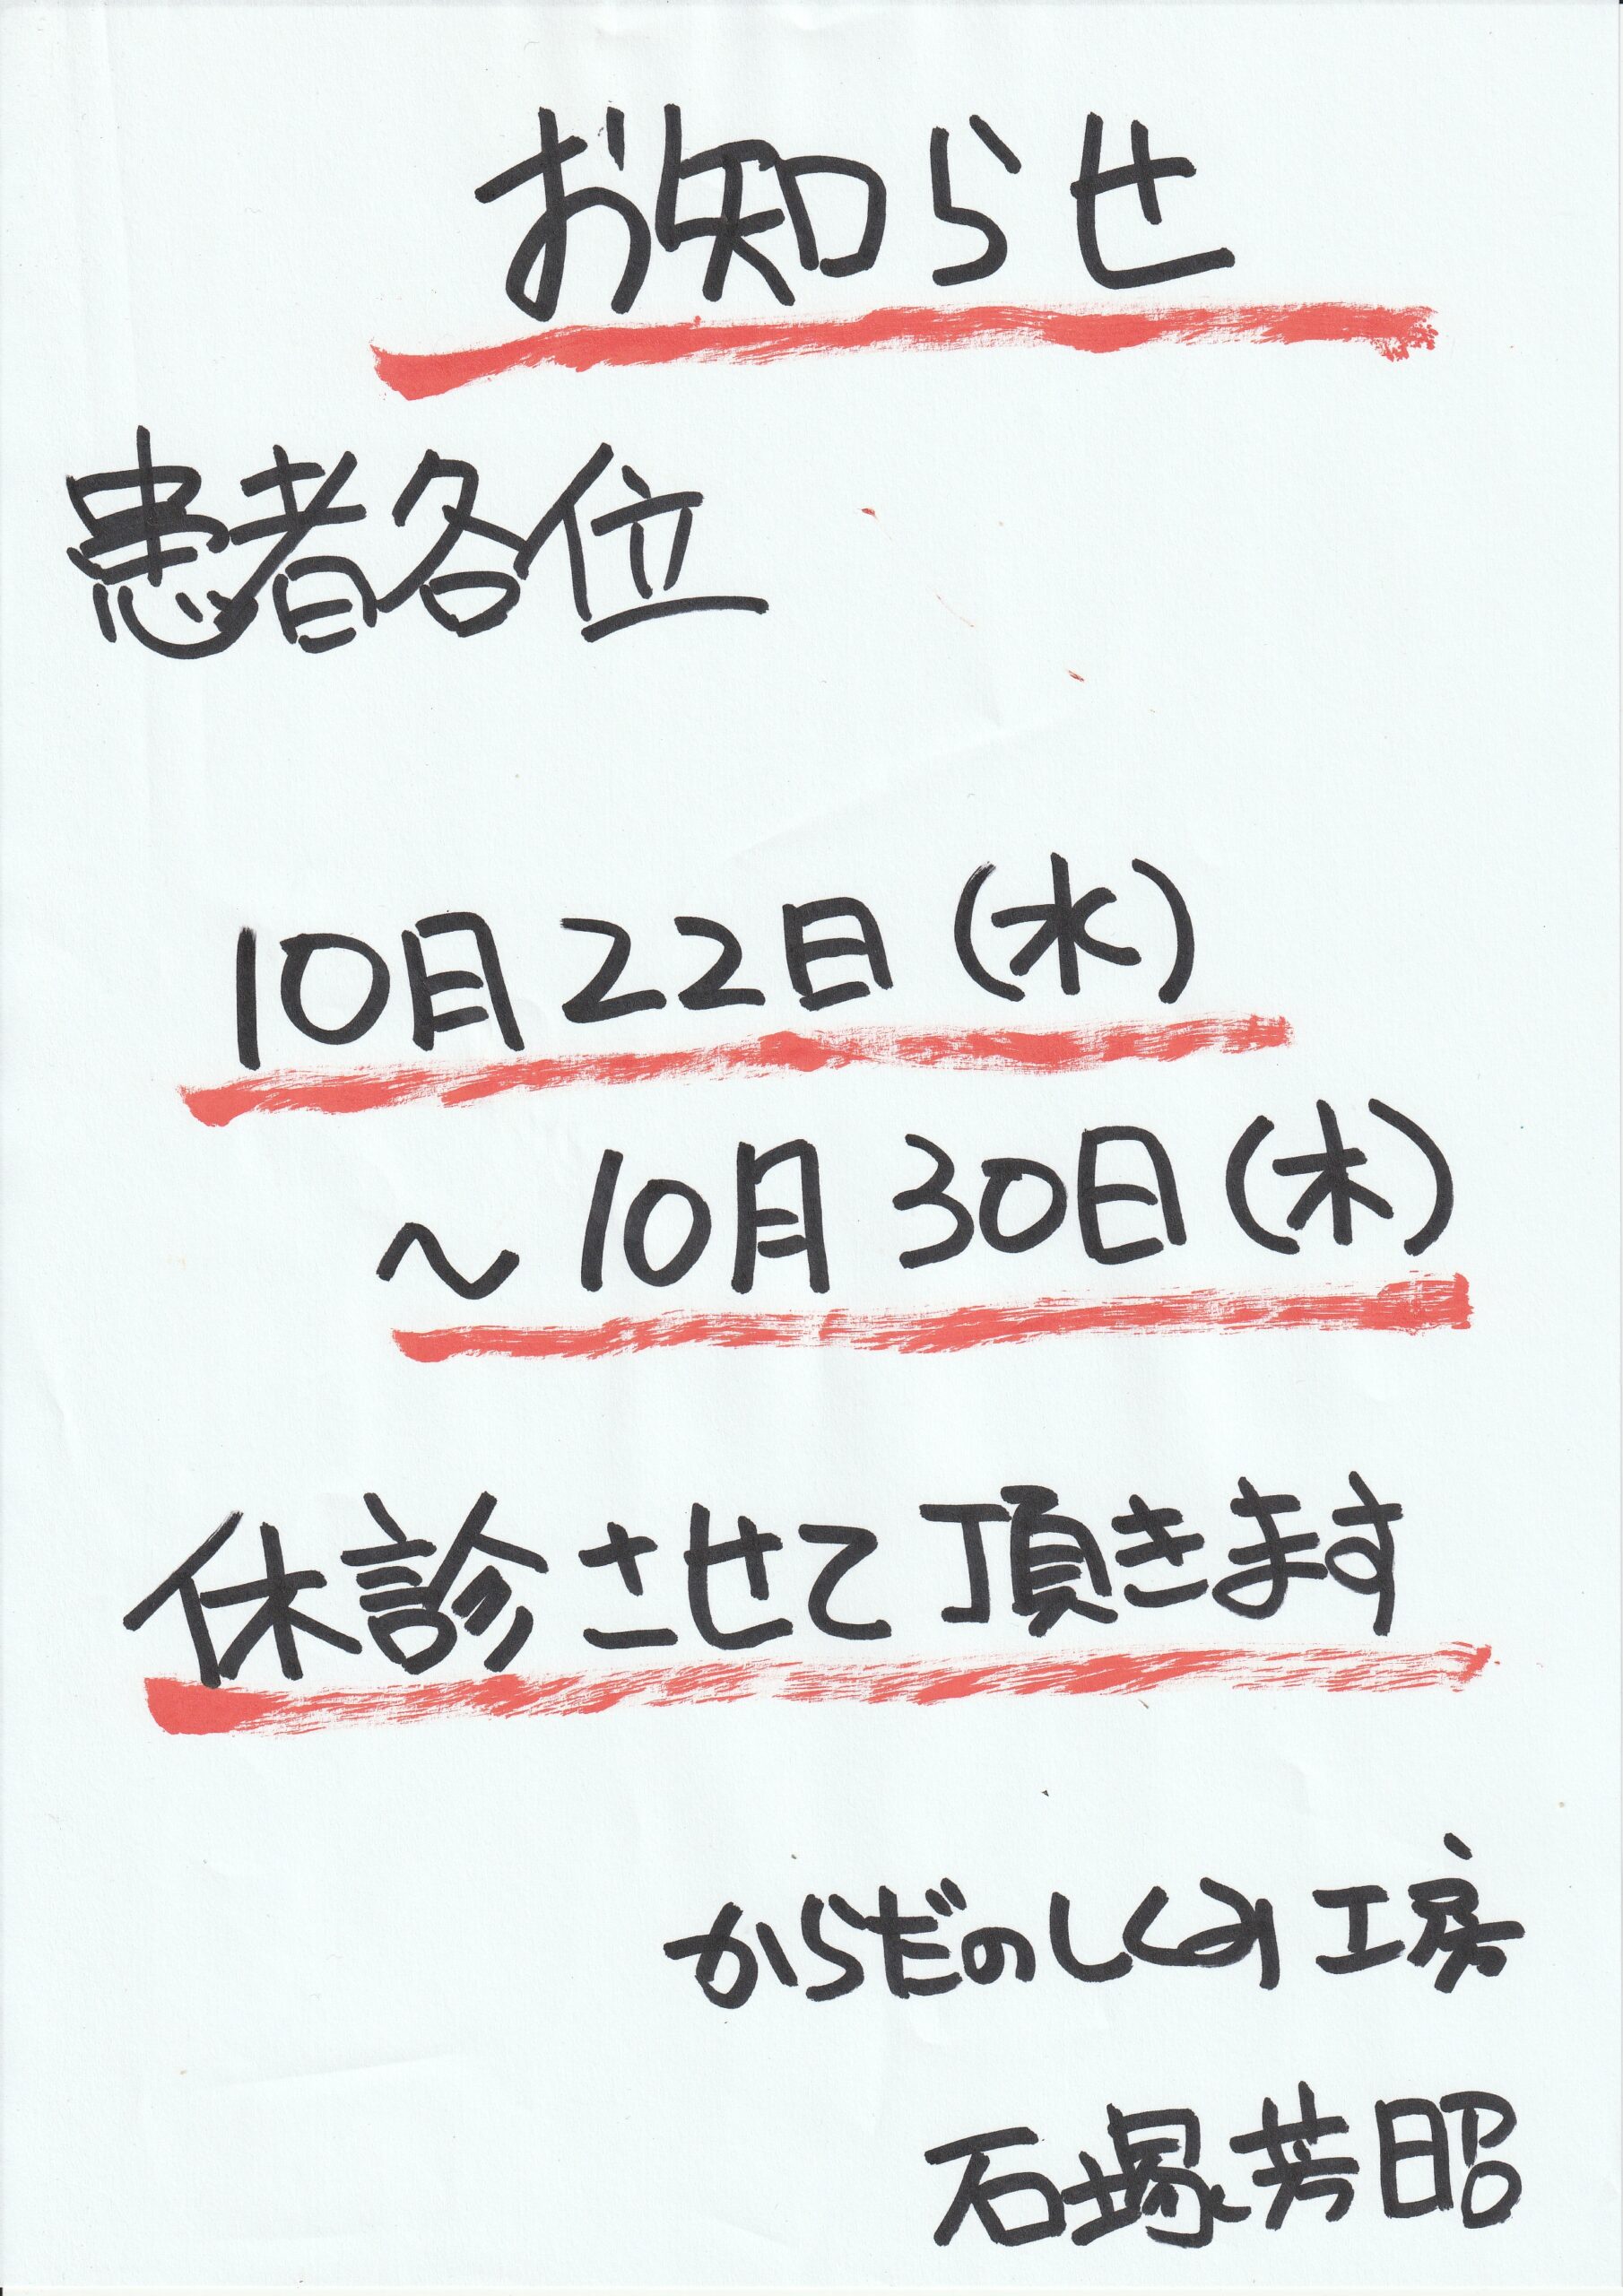 お知らせ
患者各位
10月22日(水)
~10月30日(木)
休診させて頂きます
からだのしくみ工房
石塚芳昭